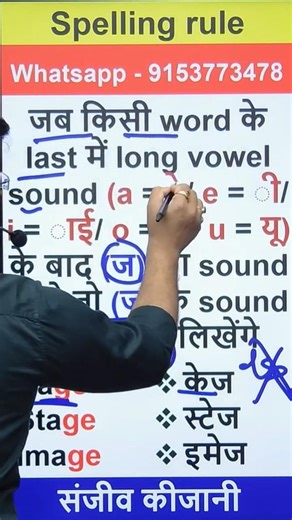 Spelling rule
Whatsapp - 9153773478
जब किसी word के
last में long vowel
sound (a = े e = ी/
= ाई/ o = u = यू)
के बाद ज sound
तो sound
लिखेंगे
केज
Stage स्टेज
Image इमेज
संजीव कीजानी